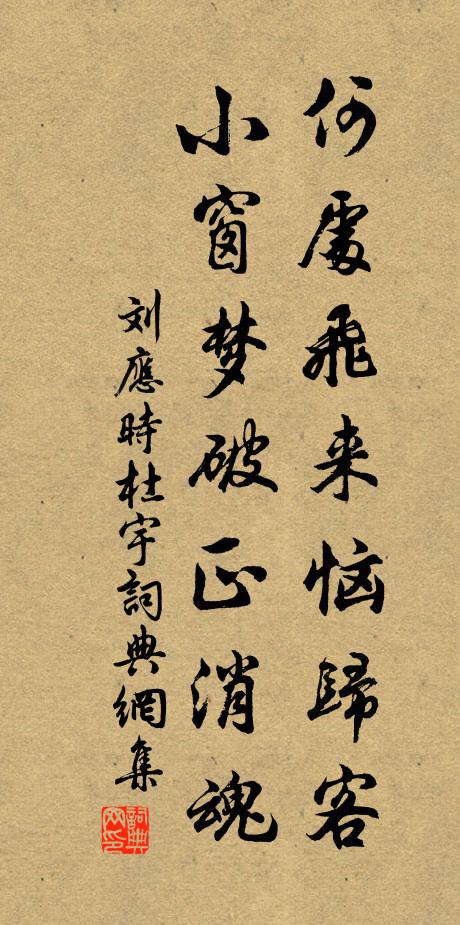 何處飛来恼歸客
小窗梦破正消魂
刘應時杜宇詞典網集
詞典網印